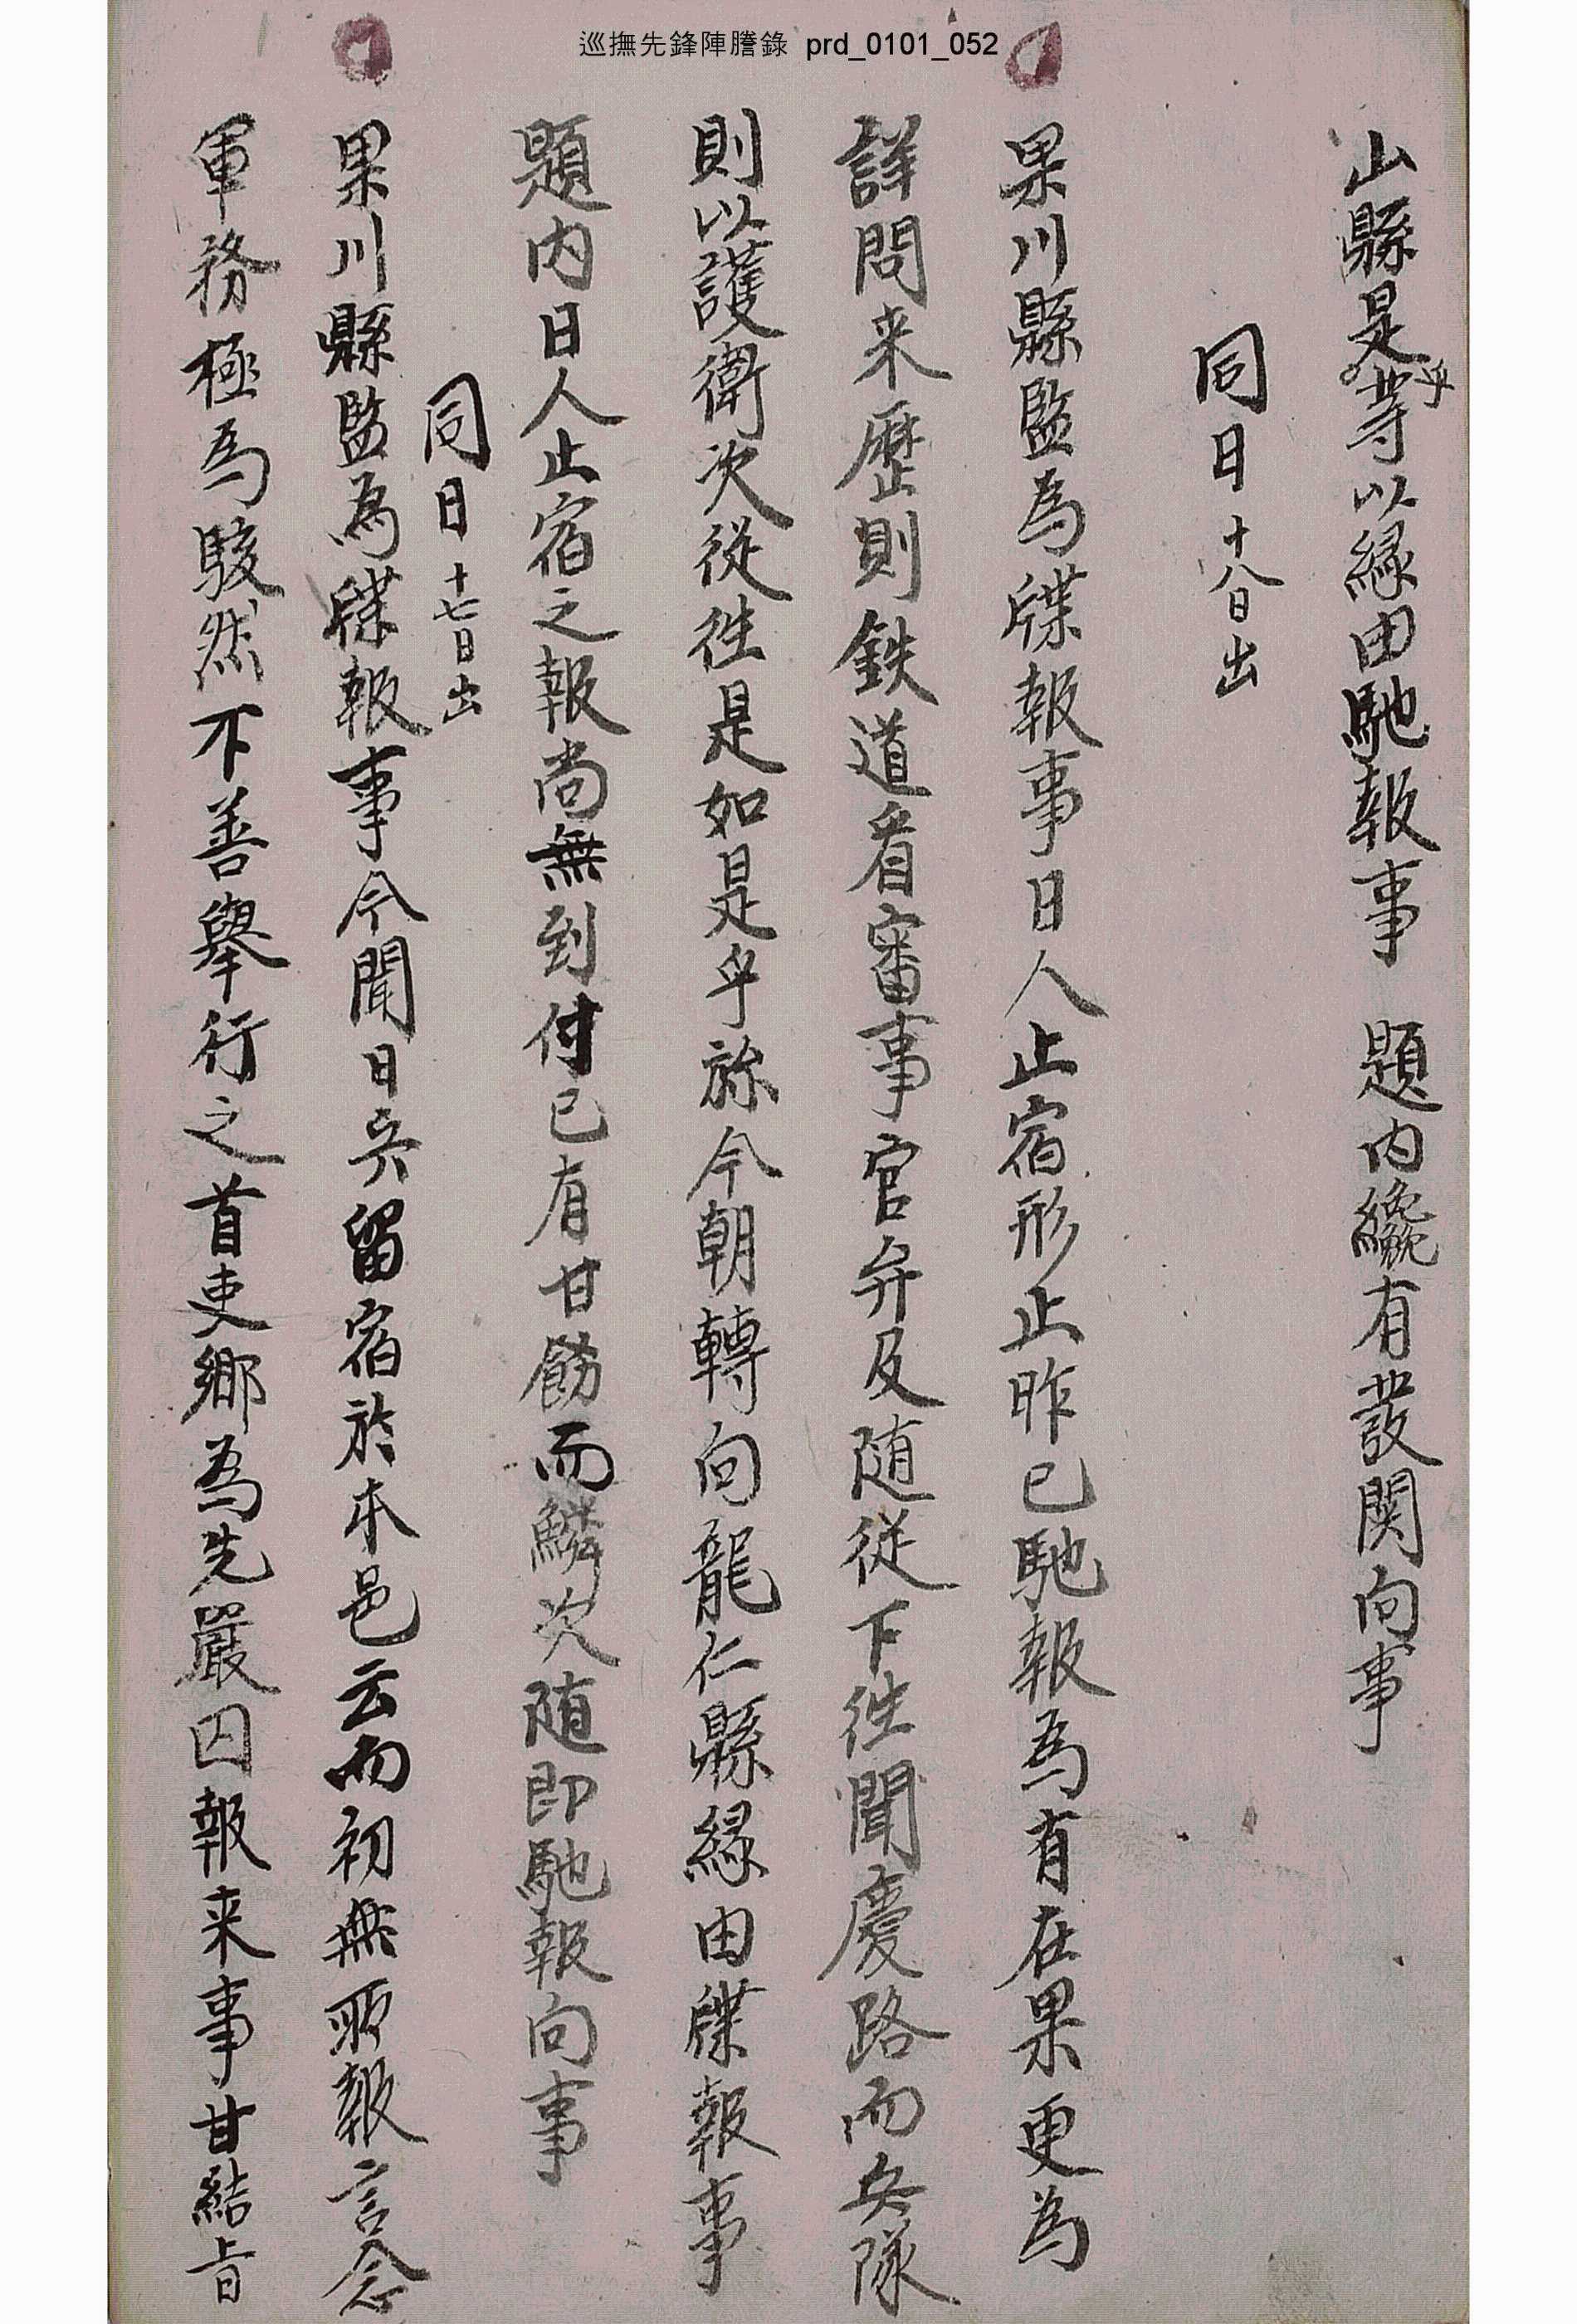 巡撫先鋒陣謄錄 prd_0101_052
山縣是乎等以緣由馳報事 題內纔有發関向事
同日十八日出
果川縣監為牒報事日人止宿形止昨已馳報為有在果更為
詳問来歷則鉄道看審事官弁及随從下徃聞慶路而兵隊
則以護衛次從徃是如是乎旀今朝轉向龍仁縣緣由牒報事
題內日人止宿之報尚無到付已有甘飭而鱗次随即馳報向事
同日十七日出
果川縣監為牒報事今聞日兵留宿於本邑云而初無所報言念
軍務極為駭然不善舉行之首吏鄉為先嚴囚報来事甘結旨